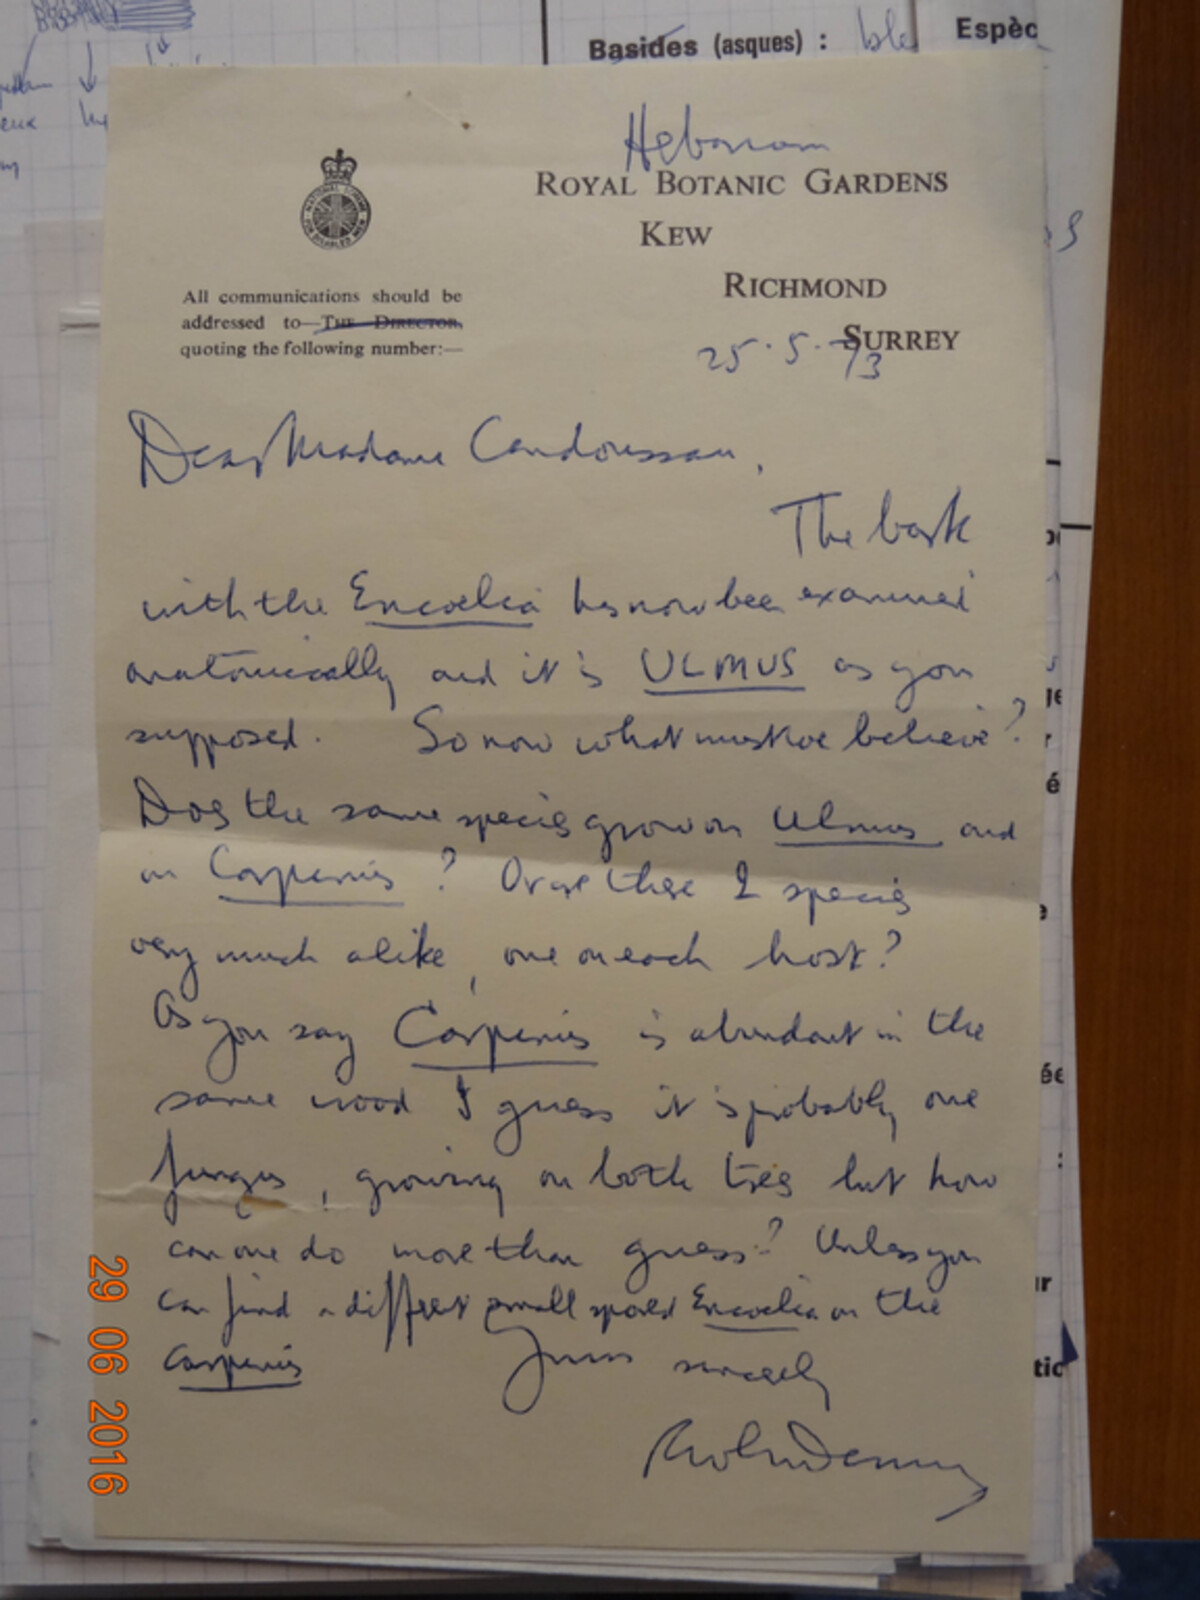 Basides (asques) : ble
Espèc
Herbarium
ROYAL BOTANIC GARDENS
KEW
RICHMOND
SURREY
25.5.73
All communications should be
addressed to—THE DIRECTOR,
quoting the following number:—
Dear Madame Candoussau,
The bark
with the Encoelia has now been examined
anatomically and it is ULMUS as you
supposed. So now what must we believe?
Does the same species grow on Ulmus and
on Carpinus? Or are there 2 species
very much alike, one on each host?
As you say Carpinus is abundant in the
same wood I guess it is probably one
fungus, growing on both trees but how
can one do more than guess? Unless you
can find a different small spored Encoelia on the
Carpinus
Yours sincerely
29 06 2016